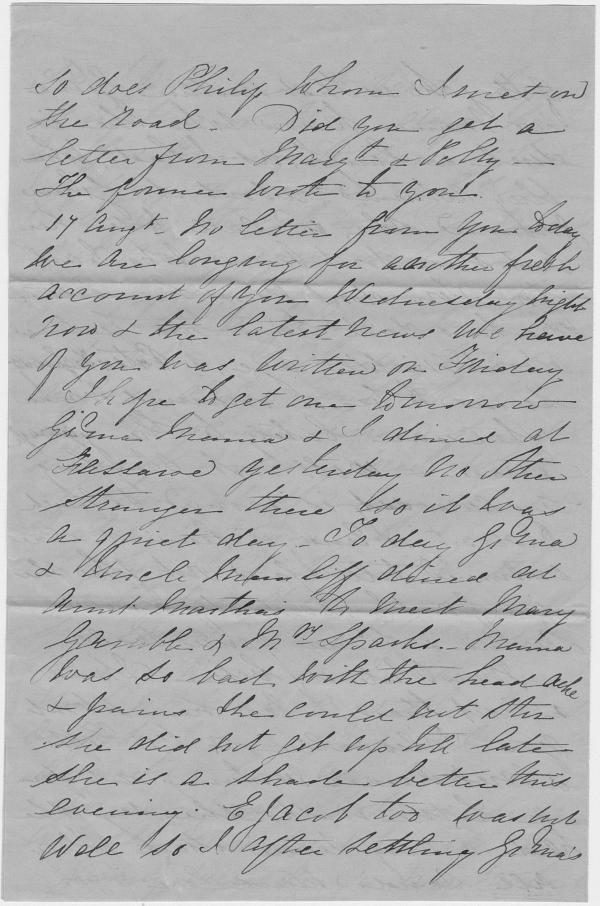 so does Philip whom I met on
the road - Did you get a
letter from Margt & Polly -
The former wrote to you
17 Augt - No letter from you today
We are longing for another fresh
account of you Wednesday night
now & the latest news we have
of you was written on Friday
I hope to get one tomorrow
Gd Ma Mama & I dined at
Fassaroe yesterday no other
stranger there so it was
a quiet day - To day Gd Ma
& Uncle dined at
Aunt Martha's to meet Mary
Gamble & Mrs Sparks - Mama
was so bad with the head ache
& pains she could not stir
she did not get up till late
she is a shade better this
evening. E Jacob too was not
well so I after settling Gd Ma's